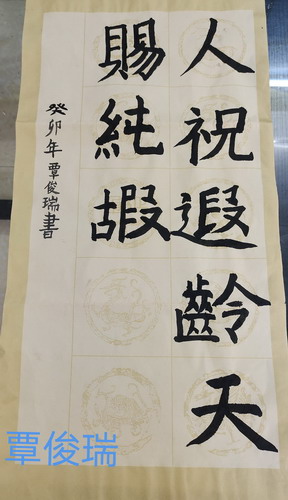 人祝遐齡天
賜純嘏
癸卯年覃俊瑞書
覃俊瑞